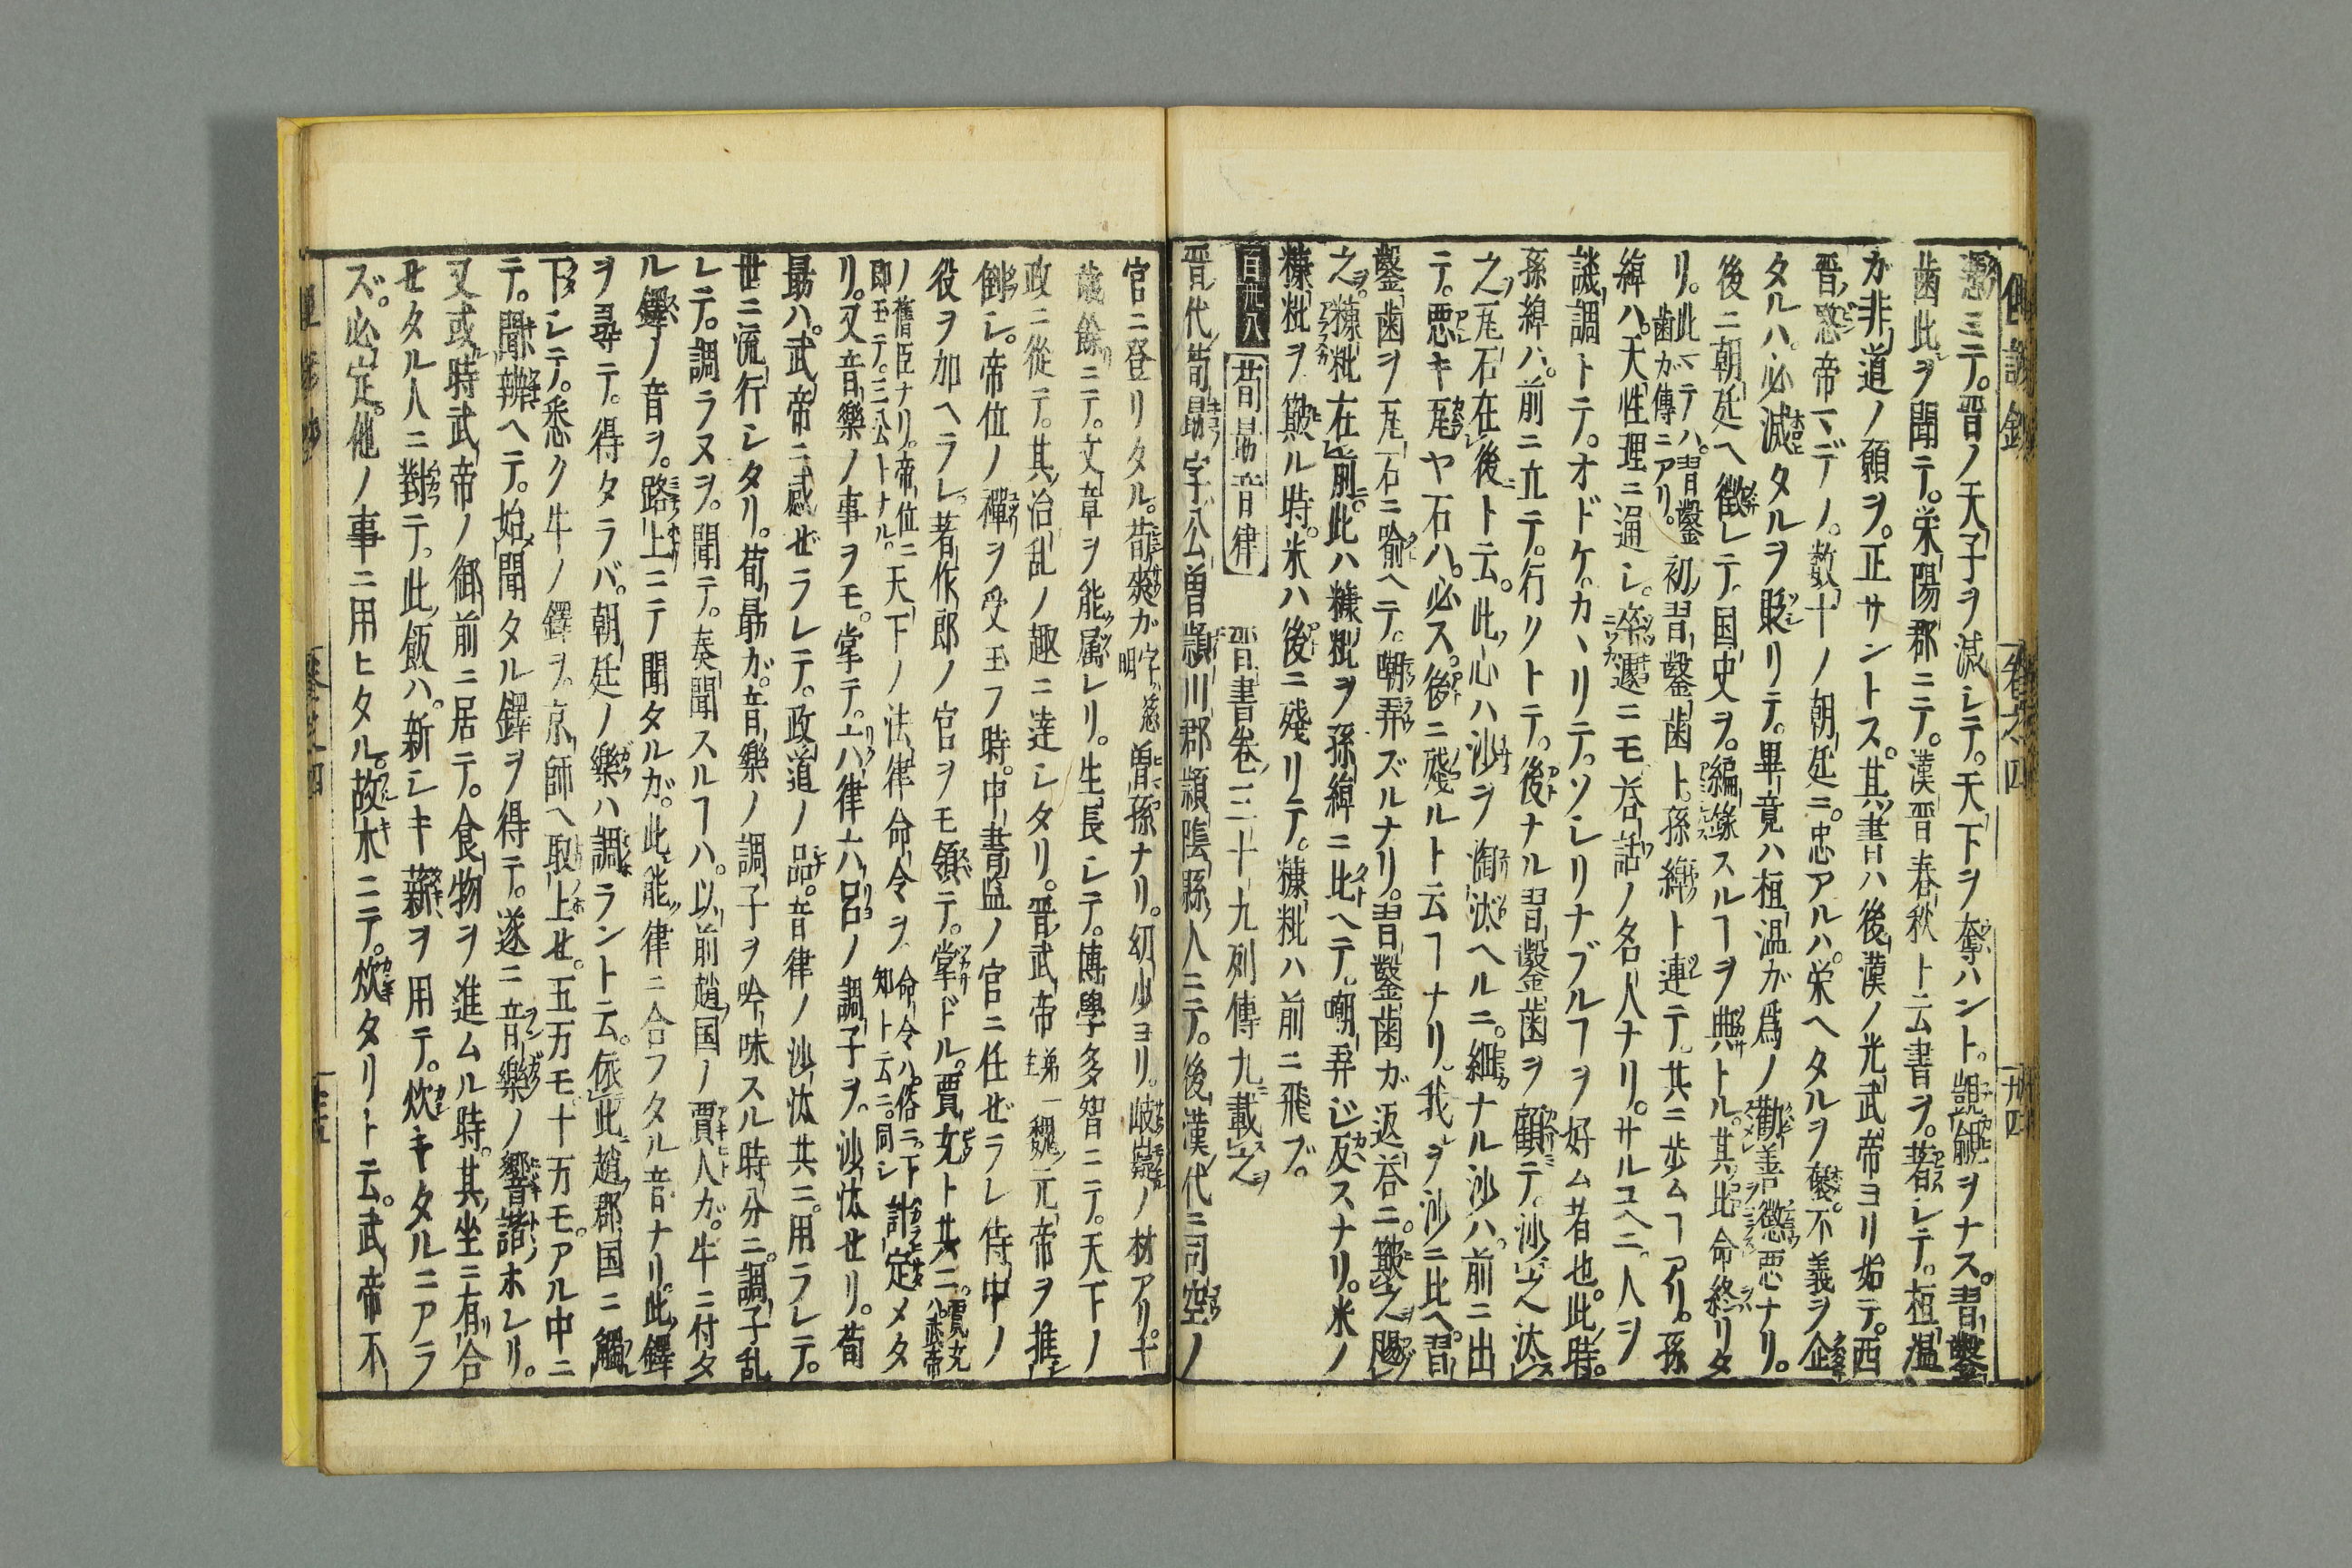 ミテ。晋ノ天子ヲ減シテ。天下ヲ奪ハント。覬覦ヲナス。習鑿
歯此ヲ聞テ。栄陽郡ニテ。漢晋春秋ト云書ヲ。著レテ。桓温
ガ非道ノ願ヲ。正サントス。其書ハ後漢ノ光武帝ヨリ始テ。西
晋愍帝マデノ。数十ノ朝廷ニ。忠アルハ。栄ヘタルヲ褒。不義ヲ企
タルハ。必滅タルヲ貶リテ。畢竟ハ桓温ガ爲ノ勸善懲悪ナリ。
後ニ朝廷ヘ徴レテ。国史ヲ。編緝スルヿヲ典トル。其比命終リタ
リ。此マテハ。習鑿歯ガ傳ニアリ。初習鑿歯ト。孫綽ト連テ。共ニ歩ムヿアリ。孫
綽ハ。天性理ニ通シ。卒遽ニモ答話ノ名人ナリ。サルユヘニ。人ヲ
談調トテ。オドケカヽリテ。ソシリナブルヿヲ好ム者也。此時。
孫綽ハ。前ニ立テ。行クトテ。後ナル習鑿歯ヲ顧テ。沙之汰
之。瓦石在後ト云。此心ハ沙ヲ淘汰ヘルニ。細ナル沙ハ。前ニ出
テ。悪キ瓦ヤ石ハ。必ス。後ニ殘ルト云ヿナリ。我ヲ沙ニ比ヘ。習
鑿歯ヲ瓦石ニ喩ヘテ。嘲弄ズルナリ。習鑿歯ガ返答ニ。簸之颺
之。糠粃在前。此ハ糠粃ヲ孫綽ニ比ヘテ。嘲弄ジ反スナリ。米ノ
糠粃ヲ簸ル時。米ハ後ニ殘リテ。糠粃ハ前ニ飛ブ。
荀勗音律 晋書卷三十九列傳九載之
晋代荀勗字公曽潁川郡潁陰縣人ニテ。後漢代ニ司空ノ
官ニ登リタル。荀爽ガ字慈明曽孫ナリ。幼少ヨリ。岐嶷ノ材アリ。十
歳餘ニテ。文章ヲ能属レリ。生長シテ。博學多智ニテ。天下ノ
政ニ從テ。其治乱ノ趣ニ逹シタリ。晋武帝魏元帝ヲ推
倒シ。帝位ノ禪ヲ受玉フ時。中書監ノ官ニ任ゼラレ侍中ノ
役ヲ加ヘラレ。著作郎ノ官ヲモ領テ。掌ドル。賈充ト共ニ。賈充ハ武帝
ノ舊臣ナリ。帝位ニ即玉テ。三公トナル。天下ノ法律命令ヲ命令ハ。俗ニ。下知ト云ニ。同シ計定メタ
リ。又音樂ノ事ヲモ。掌テ。六律六呂ノ調子ヲ。沙汰セリ。荀
勗ハ。武帝ニ感ゼラレテ。政道ノ品。音律ノ沙汰共ニ。用ラレテ。
世ニ流行シタリ。荀勗ガ。音樂ノ調子ヲ吟味スル時分ニ。調子乱
レテ。調ラヌヲ。聞テ。奏聞スルヿハ。以前趙国ノ賈人ガ。牛ニ付タ
ル鐸ノ音ヲ。路上ニテ聞タルガ。此能律ニ合フタル音ナリ。此鐸
ヲ尋テ。得タラバ。朝廷ノ樂ハ調ラントト云。依此趙郡国ニ觸
下シテ。悉ク牛ノ鐸ヲ。京師ヘ取上セ。五万モ。十万モ。アル中ニ
テ。聞辨ヘテ。始聞タル鐸ヲ得テ。遂ニ音樂ノ響諧ホレリ。
又或時武帝ノ御前ニ居テ。食物ヲ進ムル時。其坐ニ有合
セタル人ニ對テ。此飯ハ。新シキ薪ヲ用テ。炊キタルニアラ
ズ。必定。他ノ事ニ用ヒタル。故木ニテ。炊タリト云。武帝不